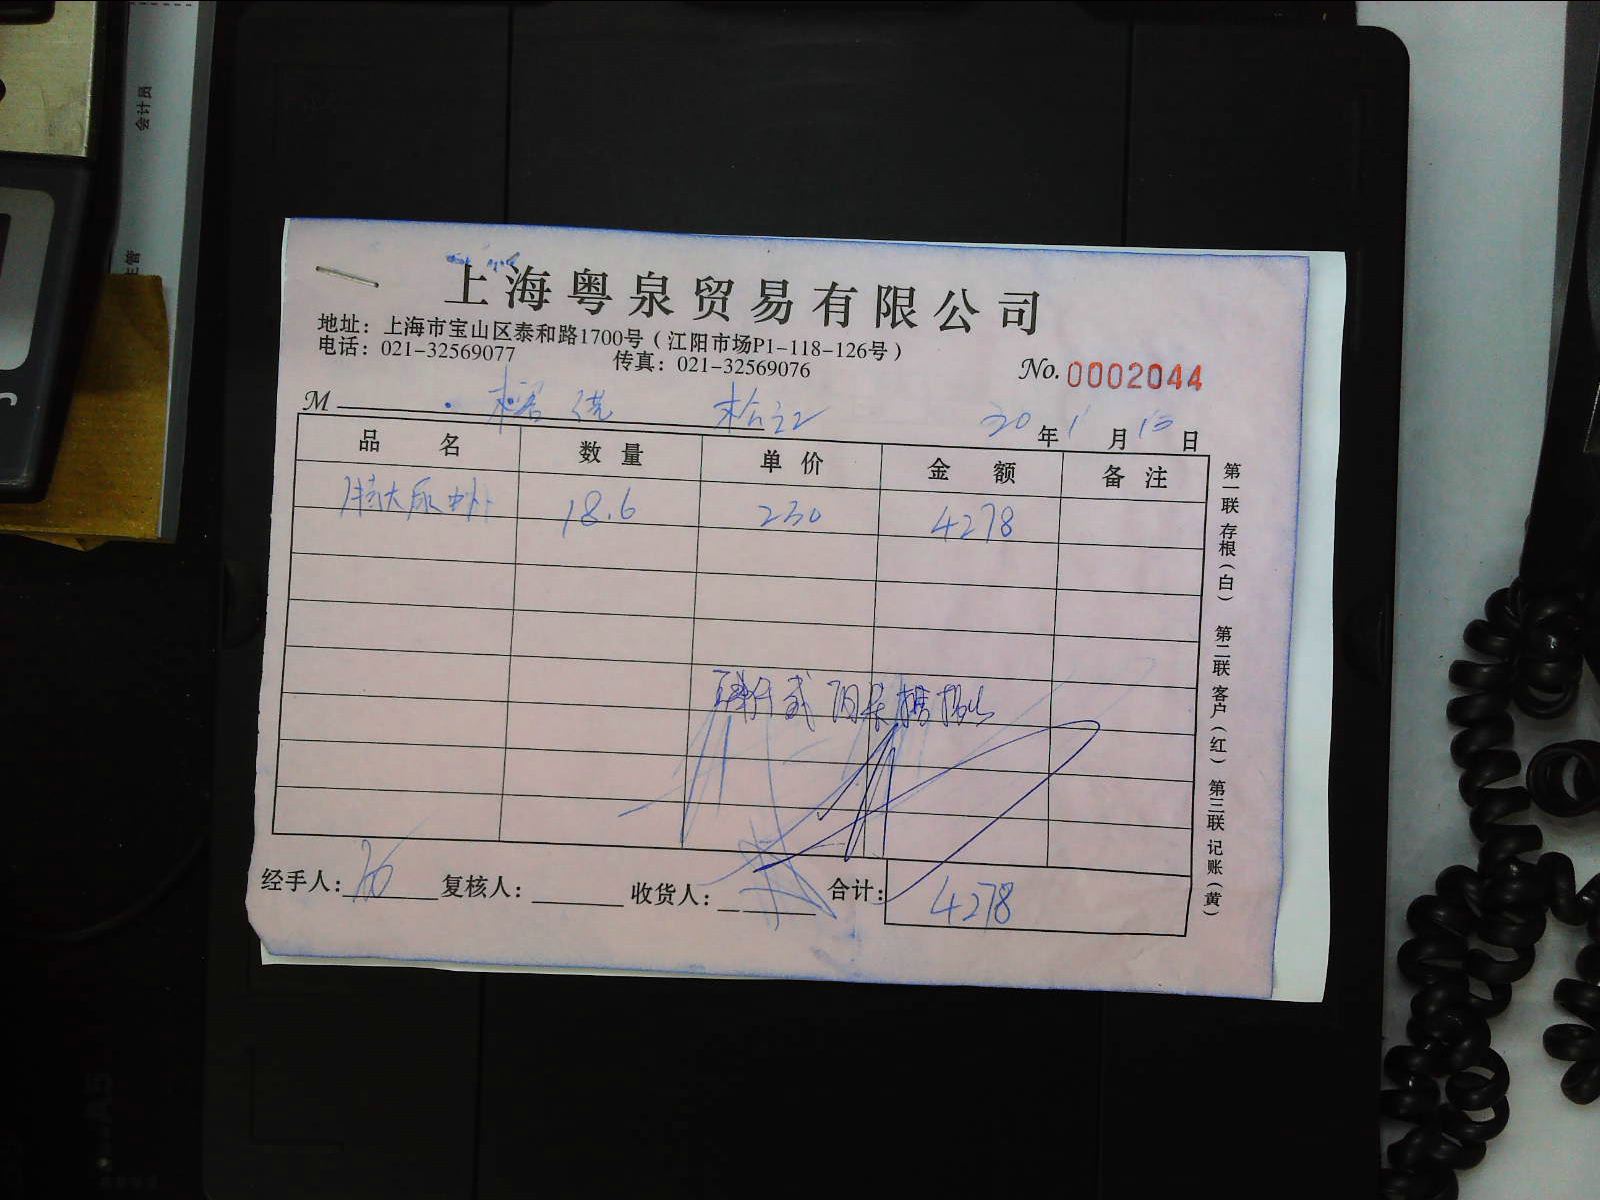 会计员
主管
上海粤泉贸易有限公司
地址：上海市宝山区泰和路1700号（江阳市场P1-118-126号）
电话：021-32569077 传真：021-32569076
No. 0002044
M 松江 20 年 1 月 13 日
品名 数量 单价 金额 备注
特大尿虾 18.6 230 4278
经手人： 复核人： 收货人： 合计： 4278
第一联 存根（白） 第二联 客户（红） 第三联 记账（黄）